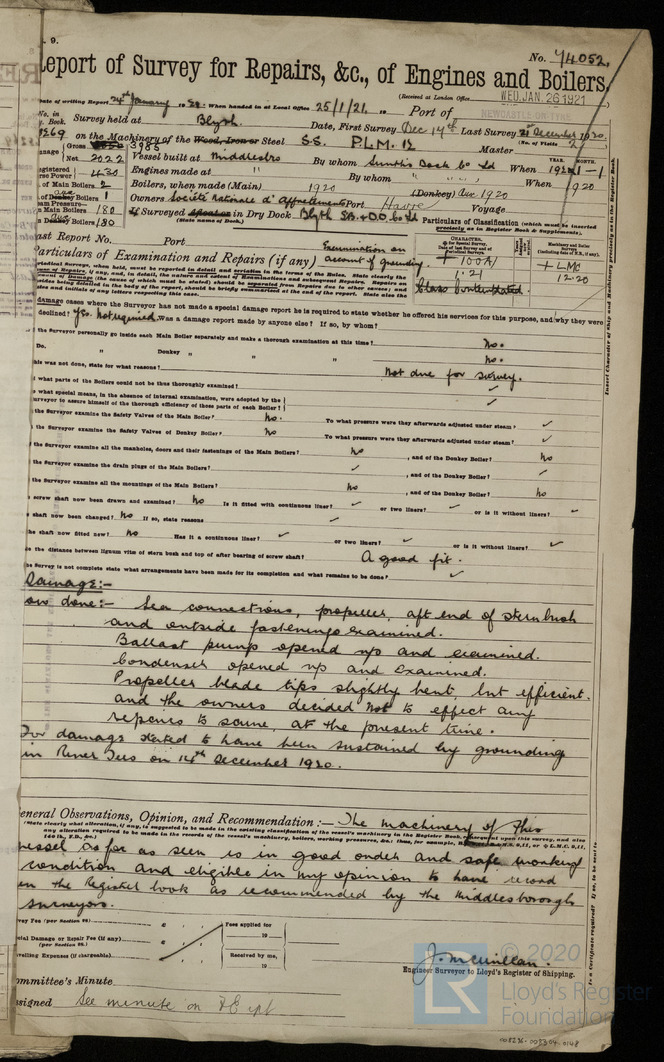 . 9.
No. 74052.
Report of Survey for Repairs, &c., of Engines and Boilers.
(Received at London Office WED. JAN. 26 1921
Date of writing Report 24th January 1921 When handed in at Local Office 25/1/21. Port of NEWCASTLE-ON-TYNE
No. in Survey held at Blyth Date, First Survey Dec 17th Last Survey 21 December 1920
Book. (No. of Visits 2)
on the Machinery of the Wood, Iron or Steel S.S. P.L.M. 12 Master
Gross 3985 Vessel built at Middlesbro By whom Smith's Dock Co Ld When 1921-1
Net 2022
Engines made at " By whom " When 1920
Registered Horse Power 430
Boilers, when made (Main) 1920 (Donkey) Dec 1920
of Main Boilers 2
of Donkey Boilers 1 Owners Société Nationale d'Affrètements Port Havre Voyage
Main Boilers 180 If Surveyed Afloat or in Dry Dock Blyth S.B. & D.D. Co Ld
(State name of Dock.)
Donkey Boilers 180
Particulars of Classification (which must be inserted precisely as in Register Book & Supplements).
Last Report No. Port
Particulars of Examination and Repairs (if any) Examination on account of grounding.
+ 100A1
1.21
Class Contemplated
+ LMC
12.20
damage cases where the Surveyor has not made a special damage report he is required to state whether he offered his services for this purpose, and why they were
declined? Yes. Not required. Was a damage report made by anyone else? If so, by whom?
the Surveyor personally go inside each Main Boiler separately and make a thorough examination at this time? No.
Do. " Donkey " " " " No.
this was not done, state for what reasons? Not due for survey.
what parts of the Boilers could not be thus thoroughly examined? ✓
what special means, in the absence of internal examination, were adopted by the
surveyor to assure himself of the thorough efficiency of those parts of each Boiler? ✓
the Surveyor examine the Safety Valves of the Main Boiler? No. To what pressure were they afterwards adjusted under steam? ✓
the Surveyor examine the Safety Valves of Donkey Boiler? No To what pressure were they afterwards adjusted under steam? ✓
the Surveyor examine all the manholes, doors and their fastenings of the Main Boilers? No , and of the Donkey Boiler? No
the Surveyor examine the drain plugs of the Main Boilers? ✓ , and of the Donkey Boiler? ✓
the Surveyor examine all the mountings of the Main Boilers? No , and of the Donkey Boiler? No
screw shaft now been drawn and examined? No Is it fitted with continuous liner? ✓ or two liners? ✓ or is it without liners? ✓
shaft now been changed? No If so, state reasons ✓
the shaft now fitted new? No Has it a continuous liner? ✓ or two liners? ✓ or is it without liners? ✓
the distance between lignum vitæ of stern bush and top of after bearing of screw shaft? A good fit.
the Survey is not complete state what arrangements have been made for its completion and what remains to be done? ✓
Damage:-
now done:- Sea connections, propeller, aft end of sternbush
and outside fastenings examined.
Ballast pump opened up and examined.
Condenser opened up and examined.
Propeller blade tips slightly bent, but efficient,
and the owners decided not to effect any
repairs to same, at the present time.
For damage stated to have been sustained by grounding
in River Tees on 14th December 1920.
General Observations, Opinion, and Recommendation:- The machinery of this
(State clearly what alteration, if any, is suggested to be made in the existing classification of the vessel's machinery in the Register Book, consequent upon this survey, and also
any alteration required to be made in the records of the vessel's machinery, boilers, working pressures, &c.; thus, for example,
vessel as far as seen is in good order and safe working
condition and eligible in my opinion to have record
in the Register book as recommended by the Middlesborough
Surveyors.
Survey Fee (per Section 28) £ Fees applied for
19
Special Damage or Repair Fee (if any) £
(per Section 28.)
Travelling Expenses (if chargeable) £ Received by me,
19
J. McMillan.
Engineer Surveyor to Lloyd's Register of Shipping.
Committee's Minute
Assigned See minute on F.E. rpt
© 2020
LR
Lloyd's Register
Foundation
Insert Character of Ship and Machinery precisely as in the Register Book